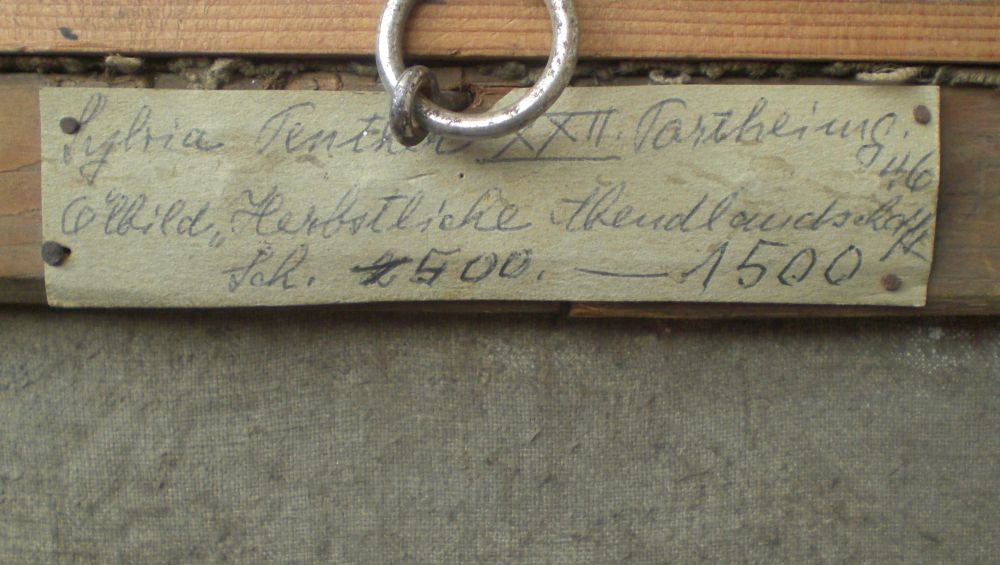 Sylvia Penther XXII. Portheimg. 46
Ölbild „Herbstliche Abendlandschaft
Sch. 2500. — 1500